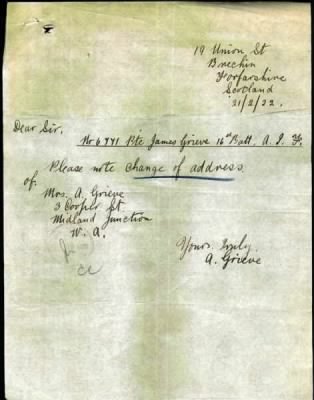 19 Union St
Brechin
Forfarshire
Scotland
21/2/22.
Dear Sir.
Nr 6741 Pte James Grieve 16th Batt. A. I. F.
Please note change of address
of.
Mrs. A. Grieve
3 Cooper St.
Midland Junction
W. A.
Yours truly.
A. Grieve